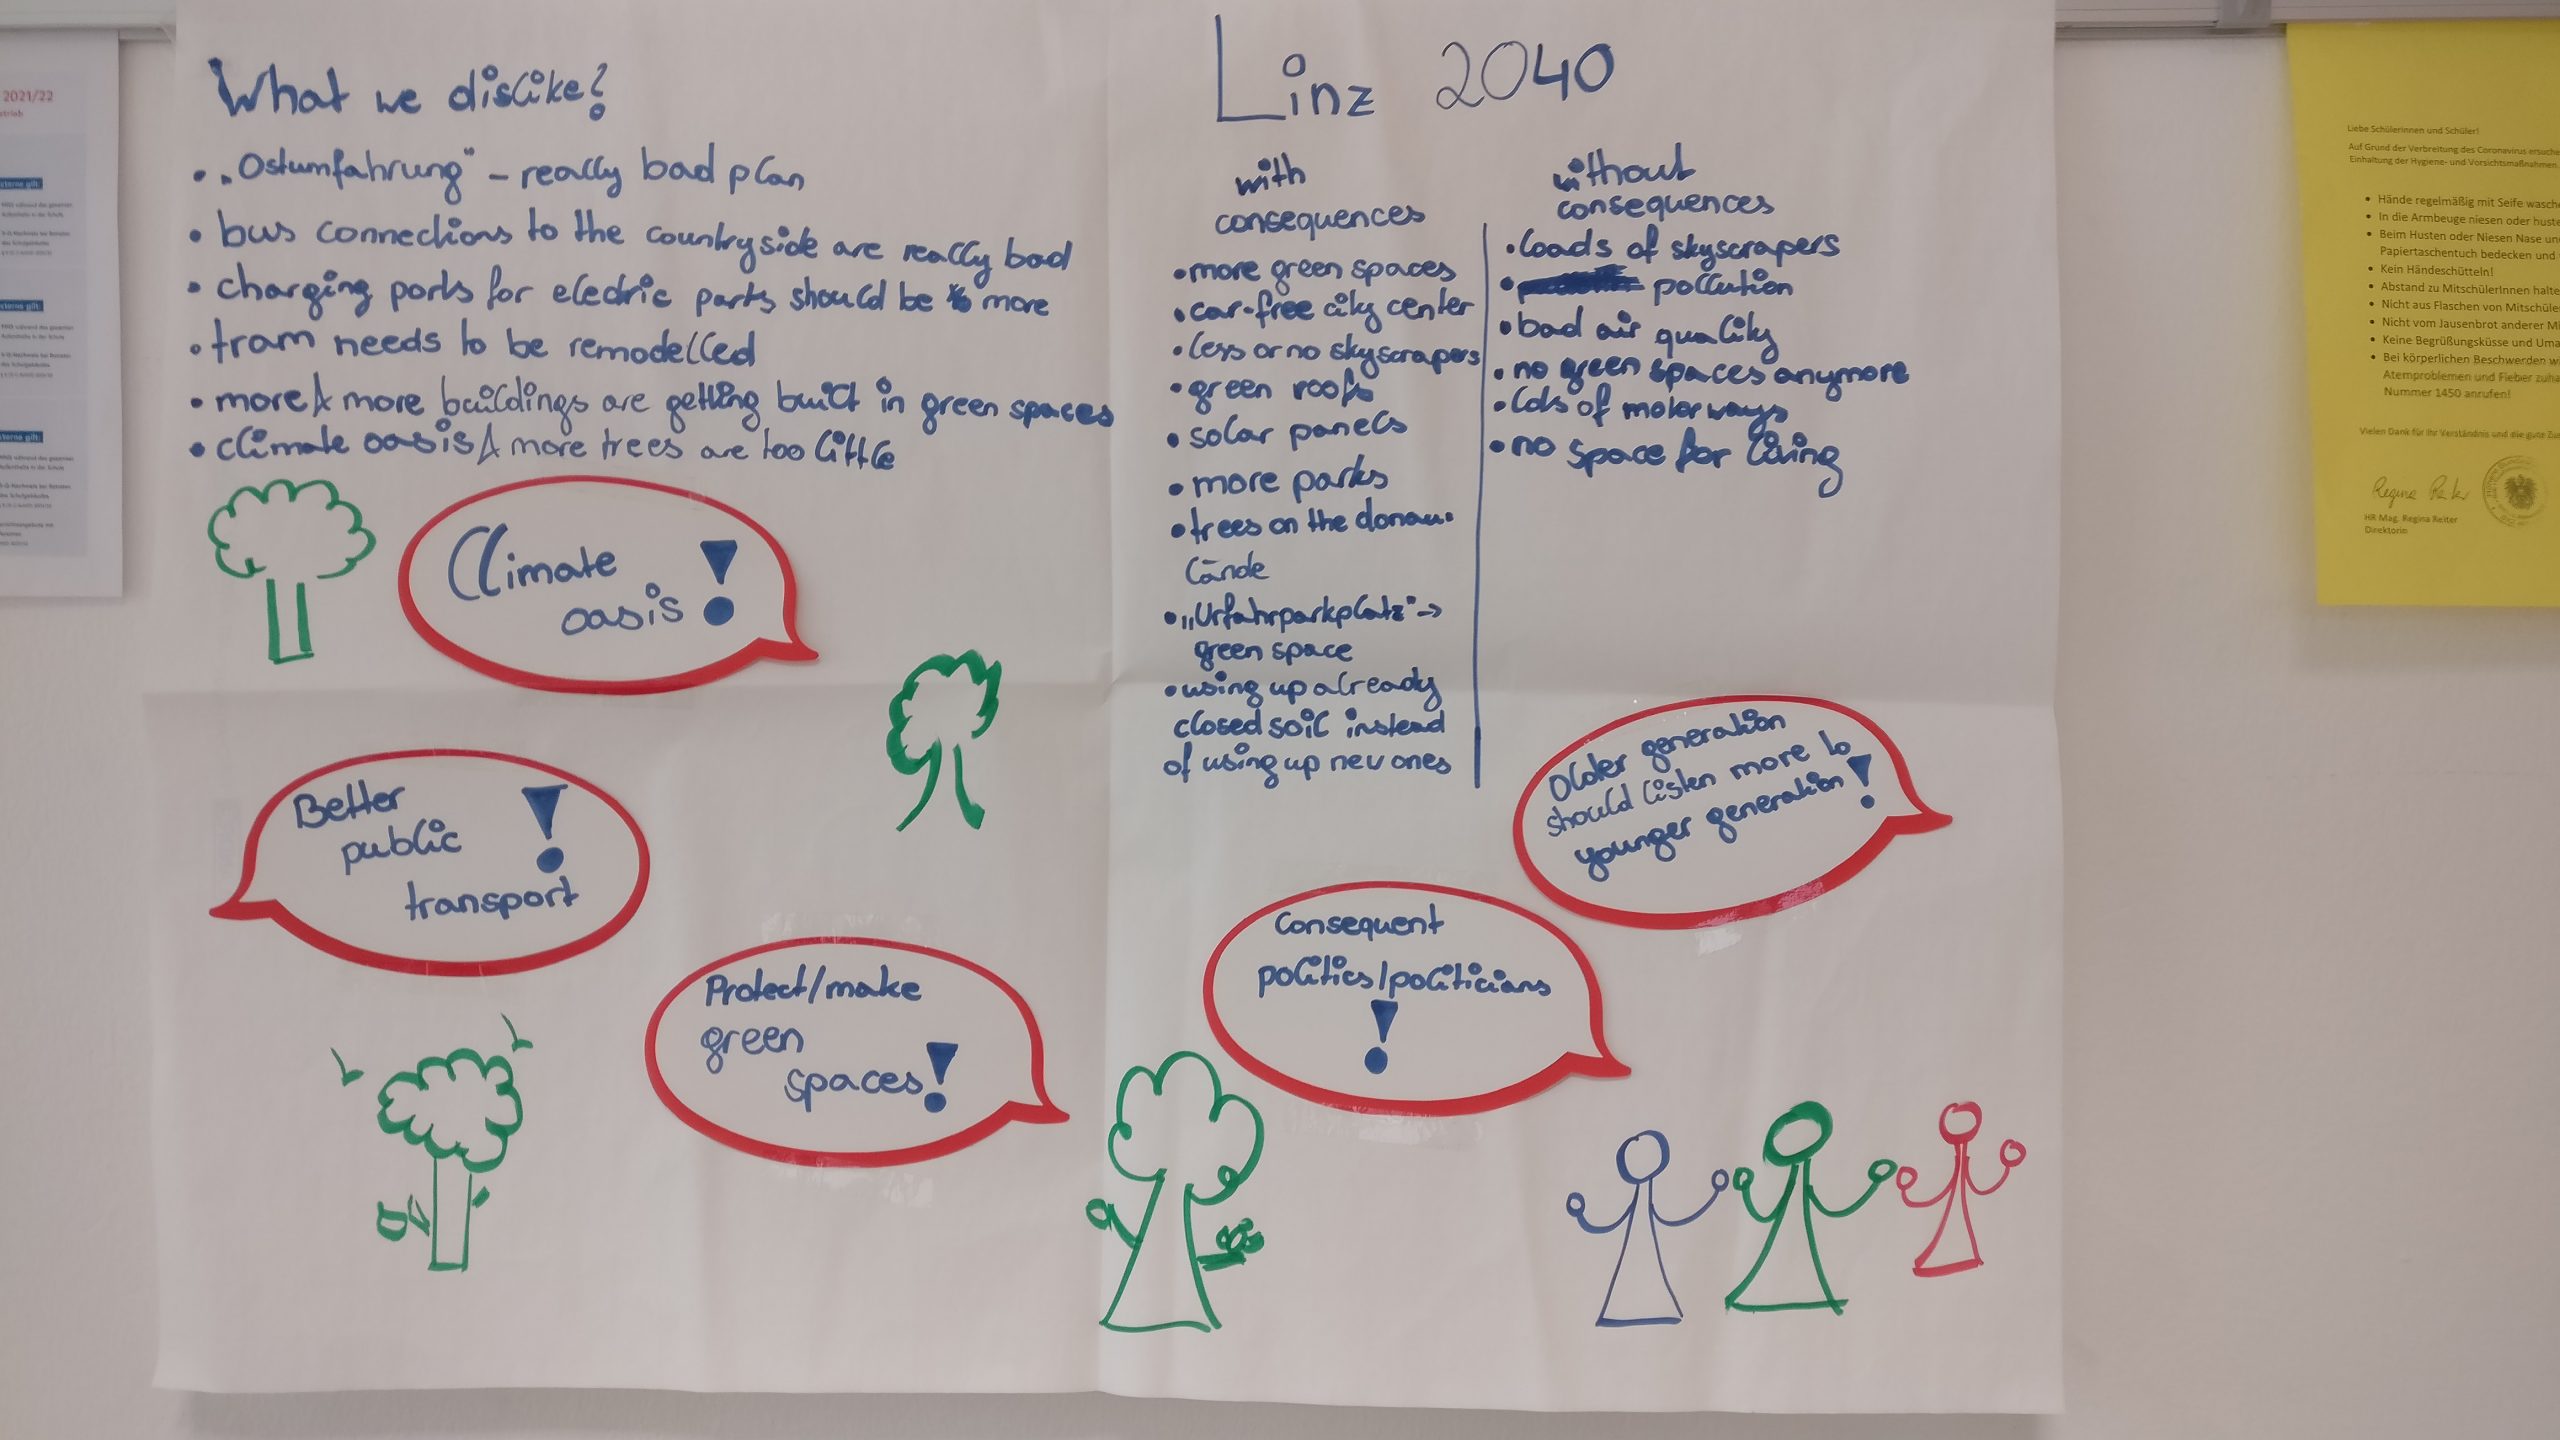 What we dislike?
• „Ostumfahrung" – really bad plan
• bus connections to the countryside are really bad
• charging ports for electric parts should be more
• tram needs to be remodelled
• more & more buildings are getting built in green spaces
• climate oasis & more trees are too little
Climate
oasis !
Better
public
transport !
Protect/make
green
spaces!
Linz 2040
with
consequences
• more green spaces
• car-free city center
• less or no skyscrapers
• green roofs
• solar panels
• more parks
• trees on the donau-
lände
• „Urfahrparkplatz" →
green space
• using up already
closed soil instead
of using up new ones
without
consequences
• loads of skyscrapers
• pollution
• bad air quality
• no green spaces anymore
• lots of motorways
• no space for living
Older generation
should listen more to
younger generation !
Consequent
politics/politicians
!
2021/22
Liebe Schülerinnen und Schüler!
Auf Grund der Verbreitung des Coronavirus
Einhaltung der Hygiene- und Vorsichtsmaßnahmen
• Hände regelmäßig mit Seife
• In die Armbeuge niesen oder
• Beim Husten oder Niesen Nase
Papiertaschentuch bedecken und
• Kein Händeschütteln!
• Abstand zu MitschülerInnen
• Nicht aus Flaschen von
• Nicht vom Jausenbrot anderer
• Keine Begrüßungsküsse und
• Bei körperlichen Beschwerden
Atemproblemen und Fieber
Nummer 1450 anrufen!
Vielen Dank für Ihr Verständnis und die gute
HR Mag. Regina Reiter
Direktorin